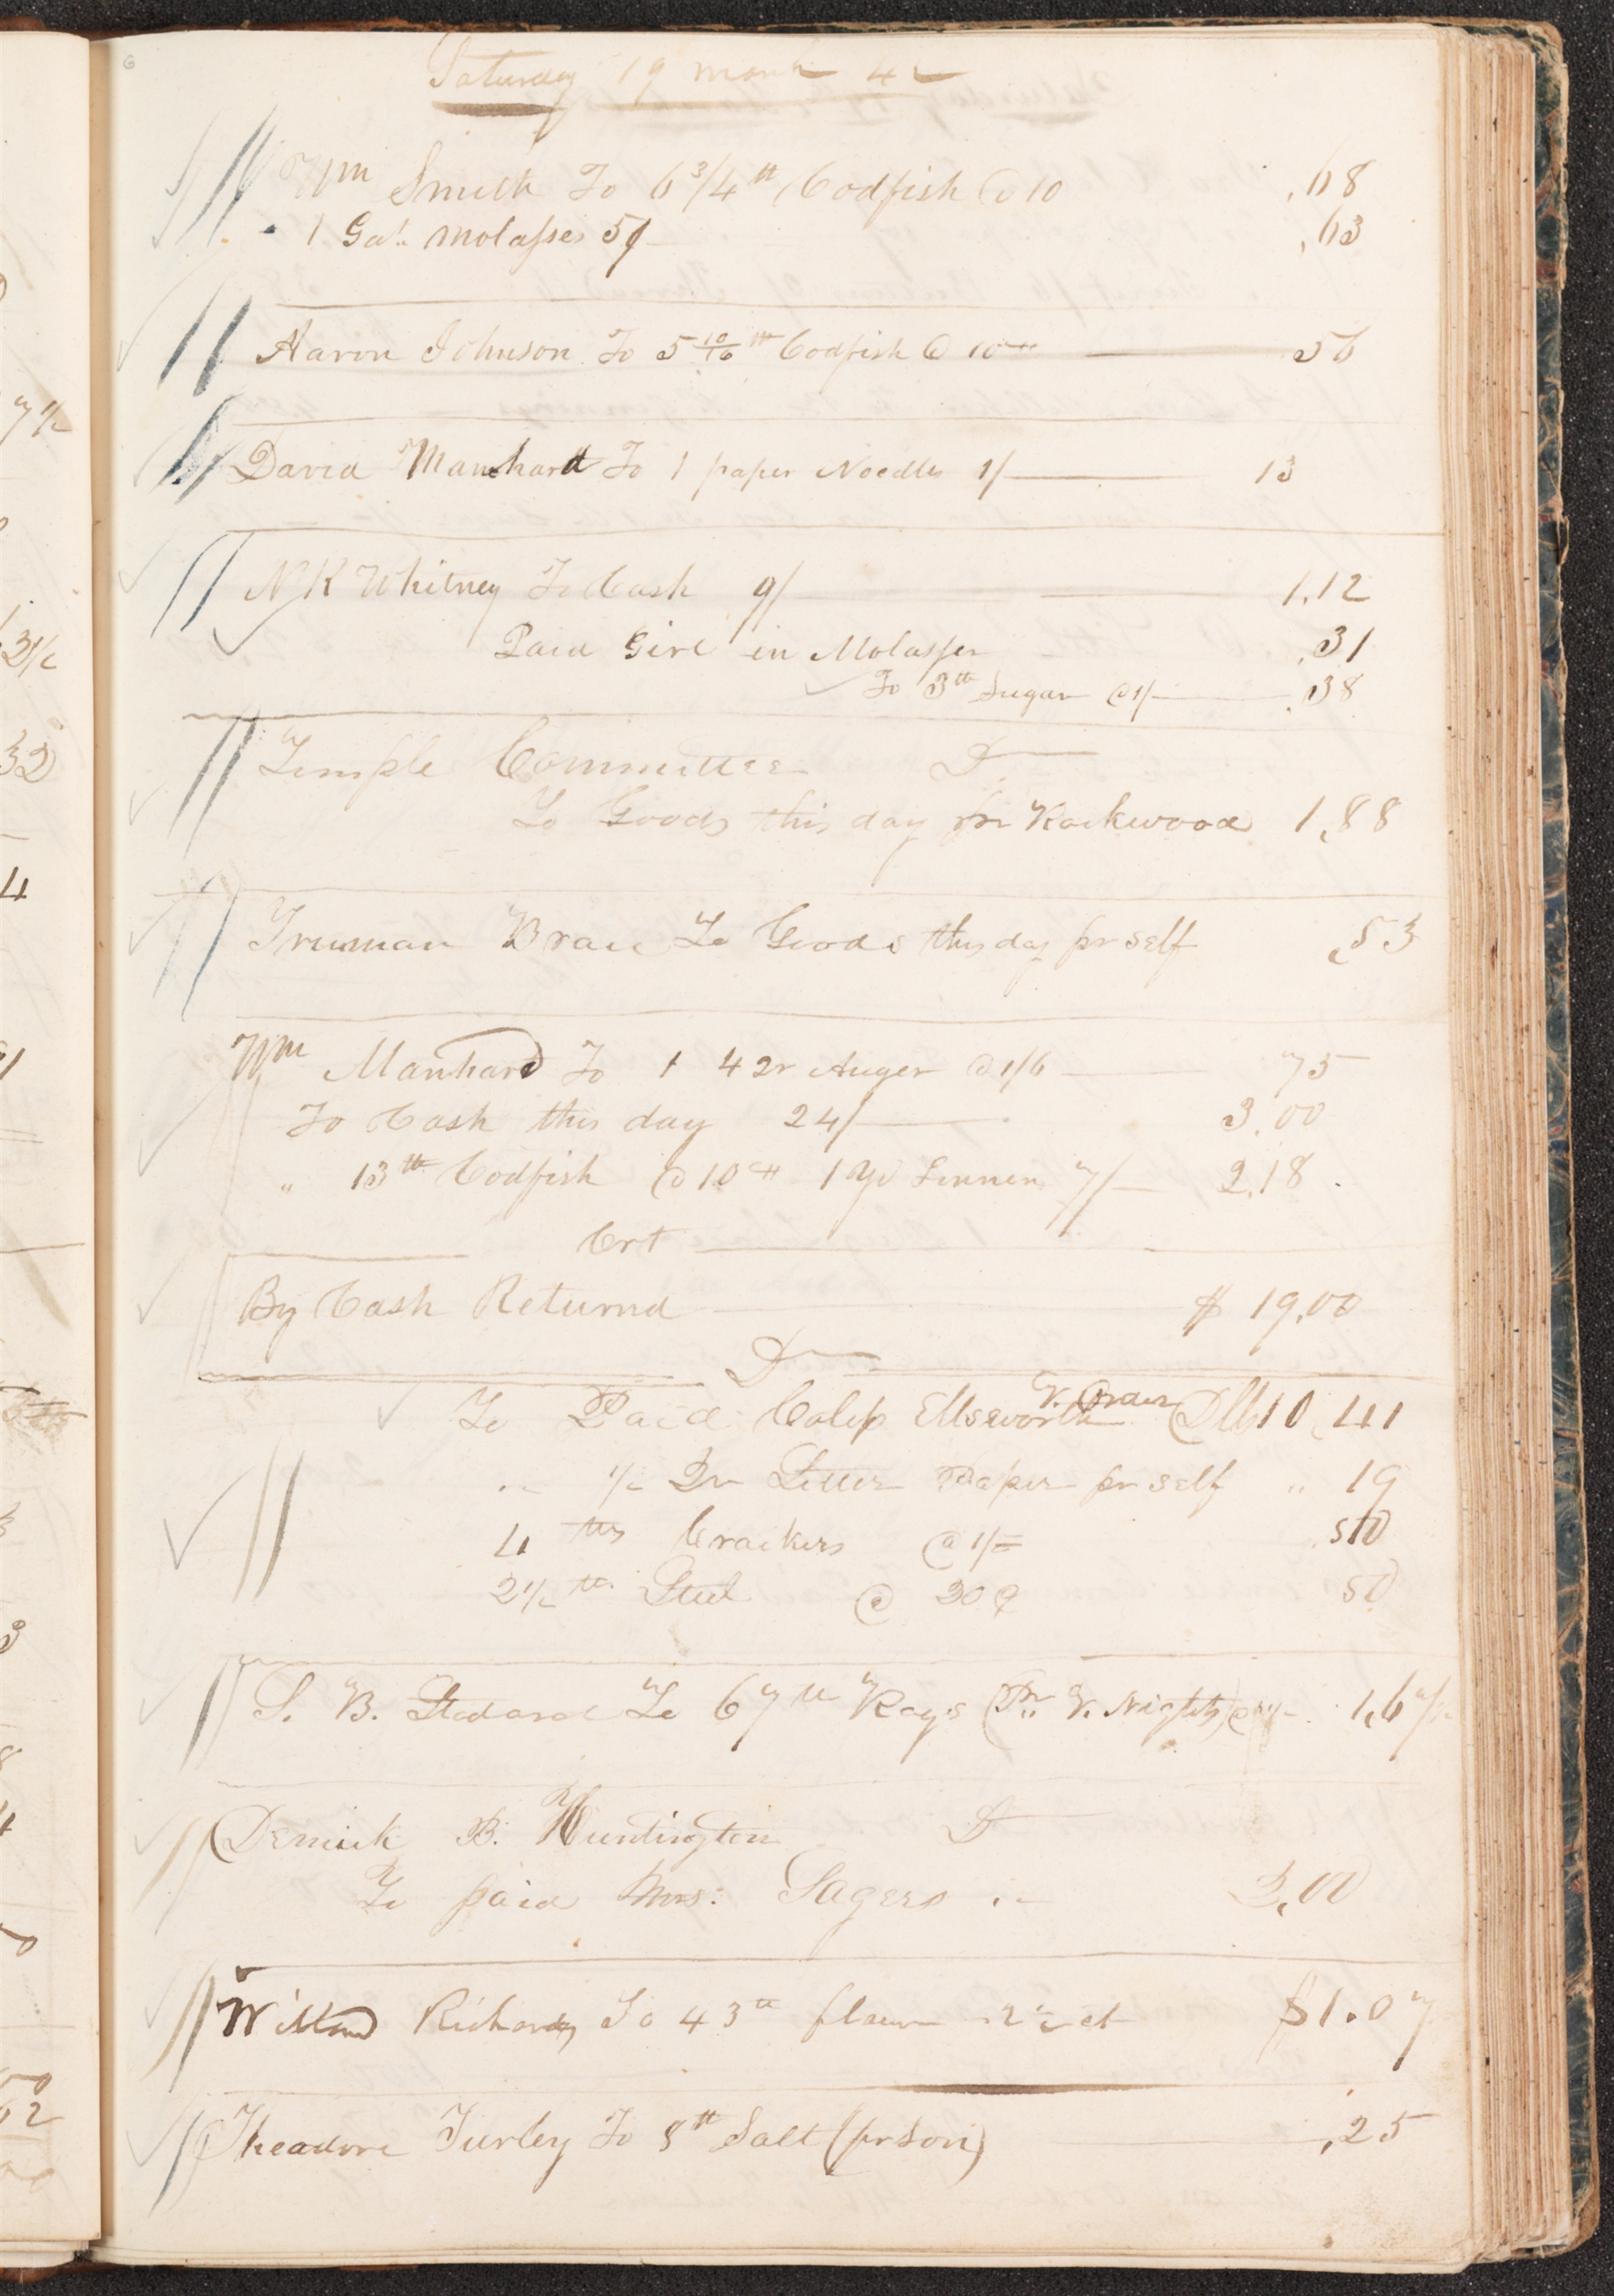 6
Saturday 19 March 42
Wm Smith To 6 3/4 lb Codfish @ 10 .68
1 Gal. Molasses 5/ .63
Aaron Johnson To 5 10/16 lb Codfish @ 10 56
David Manhard To 1 paper Needles 1/ 13
N K Whitney To Cash 9/ 1.12
Paid Girl in Molasses .31
To 3 lb Sugar @ 1/ .38
Temple Committee Dr
To Goods this day pr Rockwood 1,88
Truman Brace To Goods this day pr self ,53
Wm Manhard To 1 4 2r Auger @ 1/6 75
To Cash this day 24/ 3.00
" 13 lb Codfish @ 10 1 yd Linnen 7/ 2.18
Crt
By Cash Returnd $ 19.00
Dr
To Paid Calep Ellsworth Order Dlls 10,41
" 1/2 Qr Letter Paper pr self " 19
4 lbs Crackers @ 1/= 50
2 1/2 lb Steel @ 20 50
S. B. Stodard To 67 lb Rags 1,67
Demick B. Huntington Dr
To paid Mrs: Sagers 3,00
Willard Richards To 43 lb flour 2 1/2 ct $1.07
Theadore Turley To 8 lb Salt (pr Son) ,25